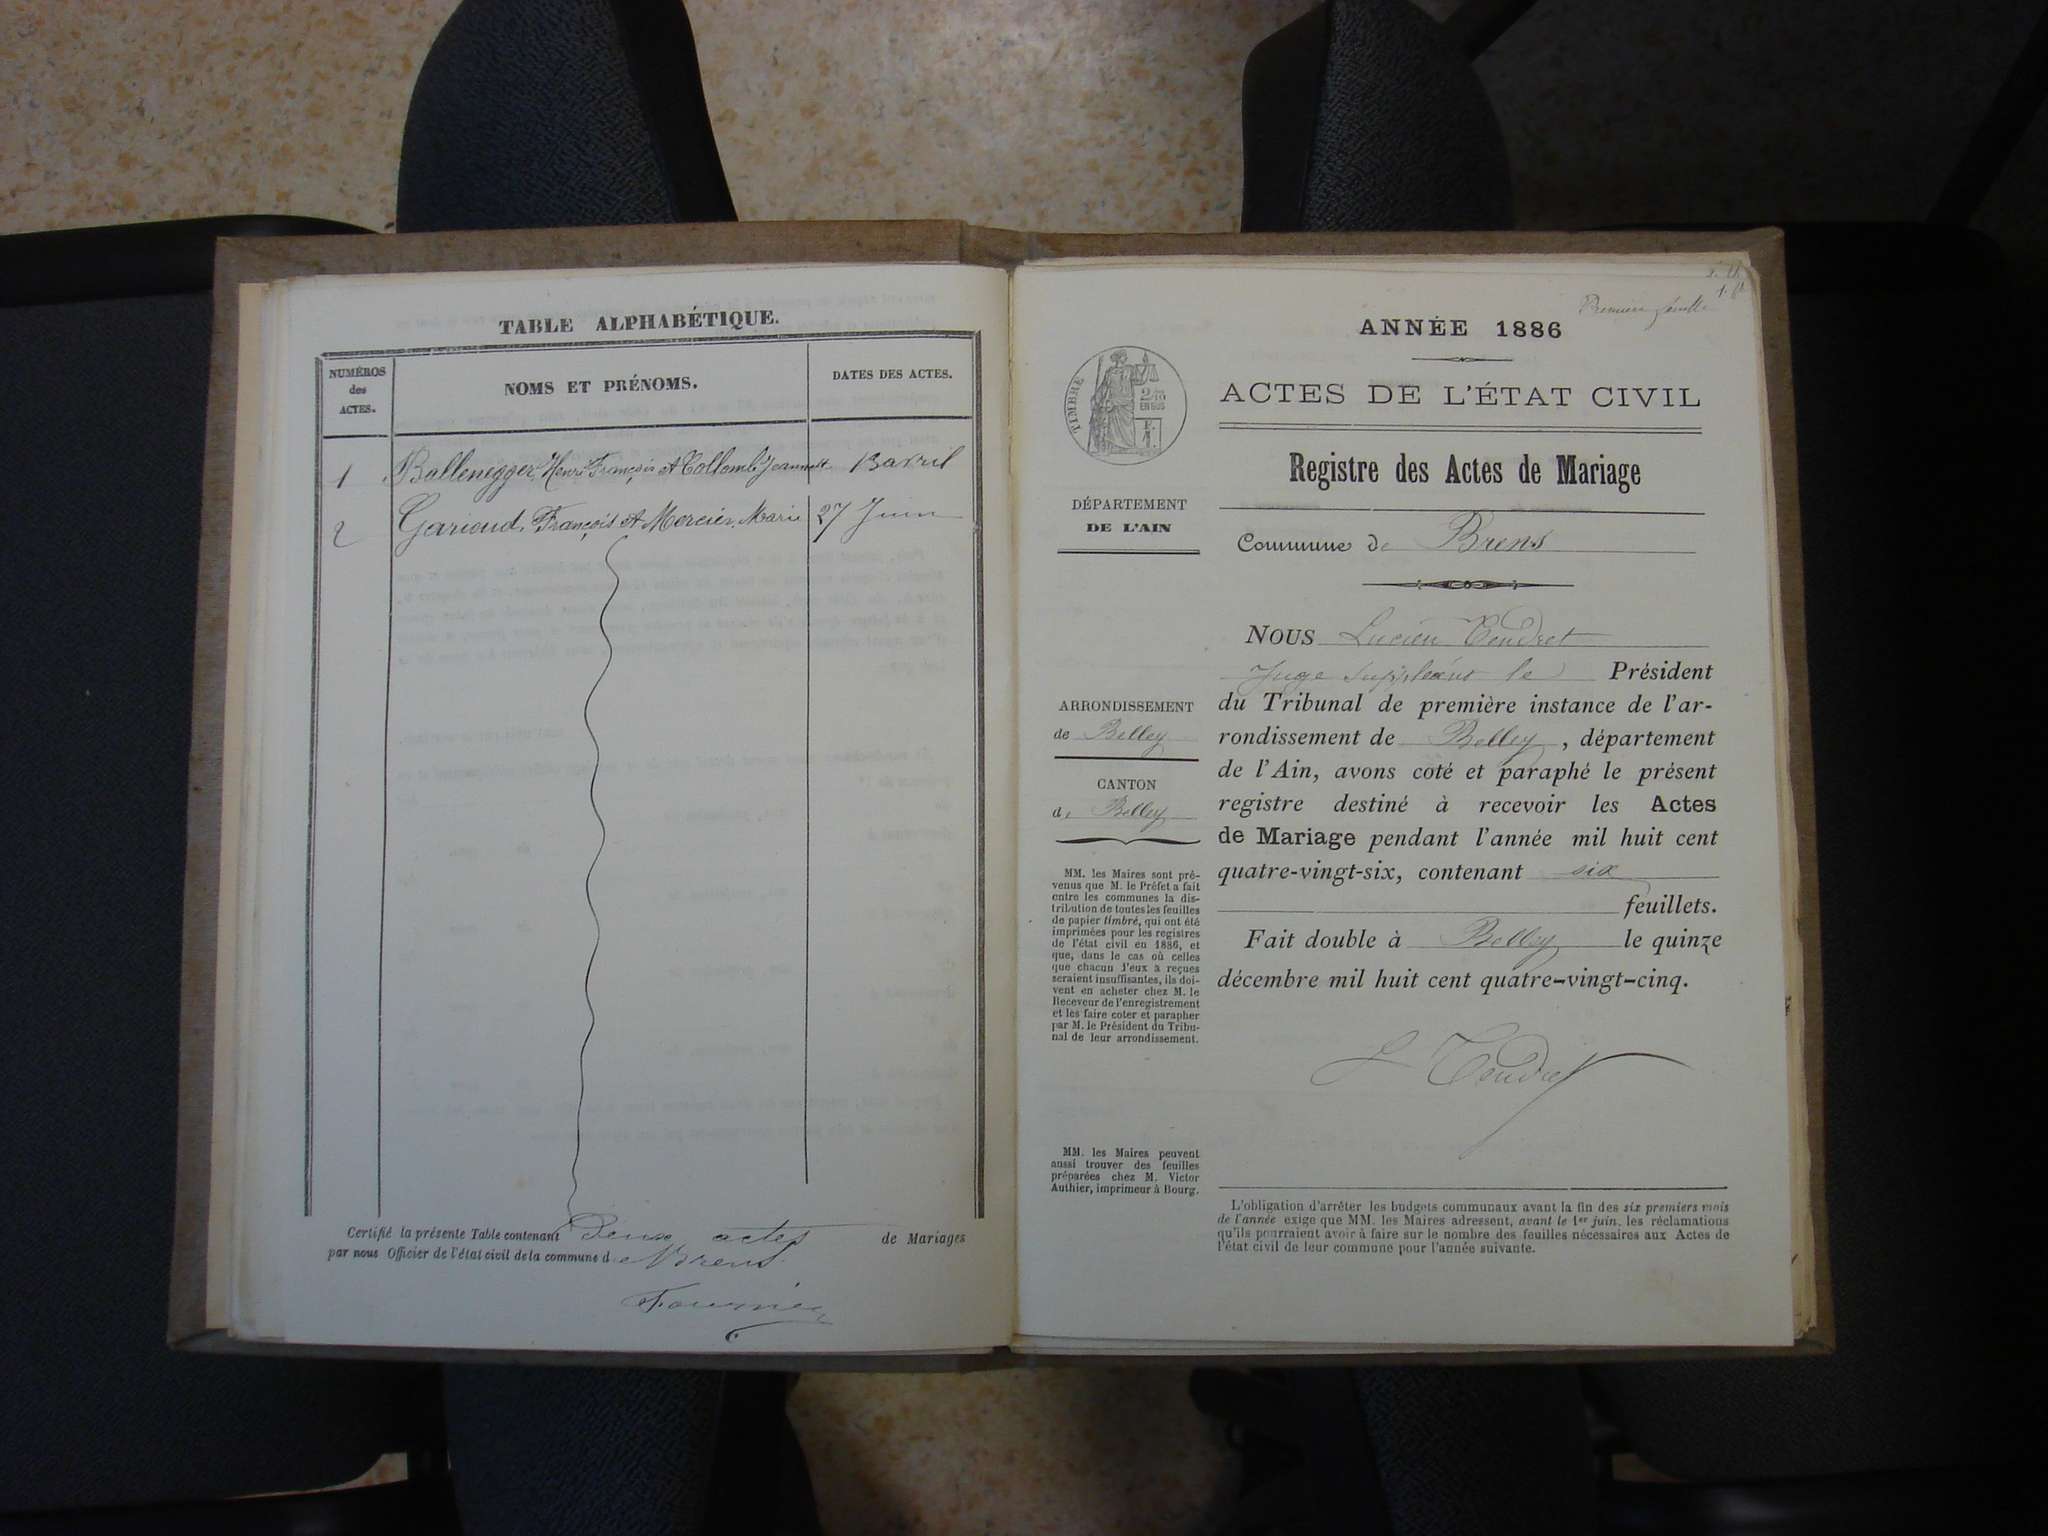 TABLE ALPHABÉTIQUE.
NUMÉROS
des
ACTES.
NOMS ET PRÉNOMS.
DATES DES ACTES.
1 Ballenegger, Henri François et Collomb Jeannette 13 avril
2 Garioud, François et Mercier, Marie 27 Juin
Certifié la présente Table contenant Deux actes de Mariages
par nous Officier de l'état civil de la commune de Brens
Fournier
Première feuille
ANNÉE 1886
ACTES DE L'ÉTAT CIVIL
Registre des Actes de Mariage
Commune de Brens
TIMBRE
EN SUS
DÉPARTEMENT
DE L'AIN
ARRONDISSEMENT
de Belley
CANTON
de Belley
MM. les Maires sont pré-
venus que M. le Préfet a fait
entre les communes la dis-
tribution de toutes les feuilles
de papier timbré, qui ont été
imprimées pour les registres
de l'état civil en 1886, et
que, dans le cas où celles
que chacun d'eux a reçues
seraient insuffisantes, ils doi-
vent en acheter chez M. le
Receveur de l'enregistrement
et les faire coter et parapher
par M. le Président du Tribu-
nal de leur arrondissement.
MM. les Maires peuvent
aussi trouver des feuilles
préparées chez M. Victor
Authier, imprimeur à Bourg.
NOUS Lucien Tendret
Juge suppléant le Président
du Tribunal de première instance de l'ar-
rondissement de Belley, département
de l'Ain, avons coté et paraphé le présent
registre destiné à recevoir les Actes
de Mariage pendant l'année mil huit cent
quatre-vingt-six, contenant six
feuillets.
Fait double à Belley le quinze
décembre mil huit cent quatre-vingt-cinq.
L Tendret
L'obligation d'arrêter les budgets communaux avant la fin des six premiers mois
de l'année exige que MM. les Maires adressent, avant le 1er juin, les réclamations
qu'ils pourraient avoir à faire sur le nombre des feuilles nécessaires aux Actes de
l'état civil de leur commune pour l'année suivante.